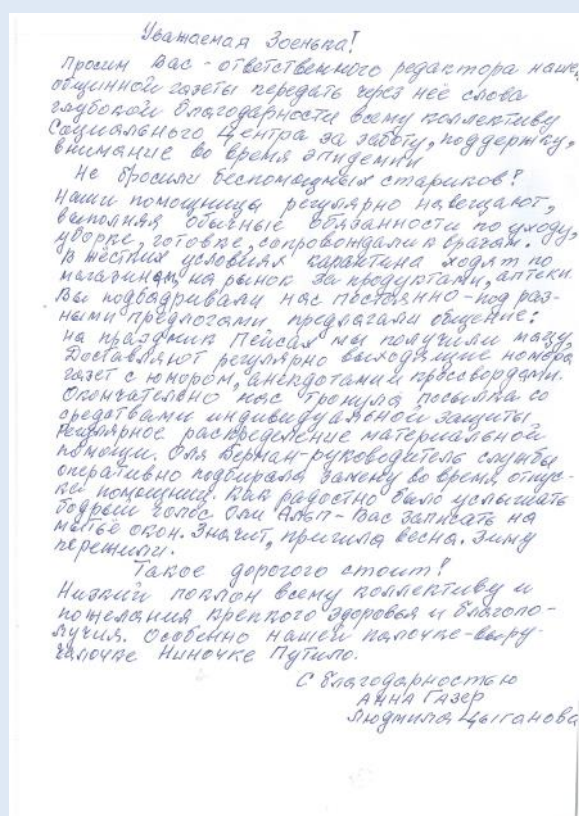 Уважаемая Зоенька!
Просим Вас - ответственного редактора наше
общинной газеты передать через неё слова
глубокой благодарности всему коллективу
Социального Центра за заботу, поддержку,
внимание во время эпидемии
Не бросили беспомощных стариков!
Наши помощницы регулярно навещают,
выполняя обычные обязанности по уходу,
уборке, готовке, сопровождали к врачам.
В жёстких условиях карантина ходят по
магазинам, на рынок за продуктами, аптеки.
Вы подбадривали нас постоянно - под раз-
ными предлогами предлагали общение:
на праздник Пейсах мы получили мацу,
Доставляют регулярно выходящие номера
газет с юмором, анекдотами и кроссвордами.
Окончательно нас тронула посылка со
средствами индивидуальной защиты
Регулярное распределение материальной
помощи. Оля Берман - руководитель службы
оперативно подбирала замену во время отпус-
ка помощниц. Как радостно было услышать
бодрый голос Оли Альп - Вас записать на
мытьё окон. Значит, пришла весна. Зиму
пережили.
Такое дорогого стоит!
Низкий поклон всему коллективу и
пожелания крепкого здоровья и благопо-
лучия. Особенно нашей палочке-выру-
чалочке Ниночке Путило.
С благодарностью
Анна Газер
Людмила Цыганова